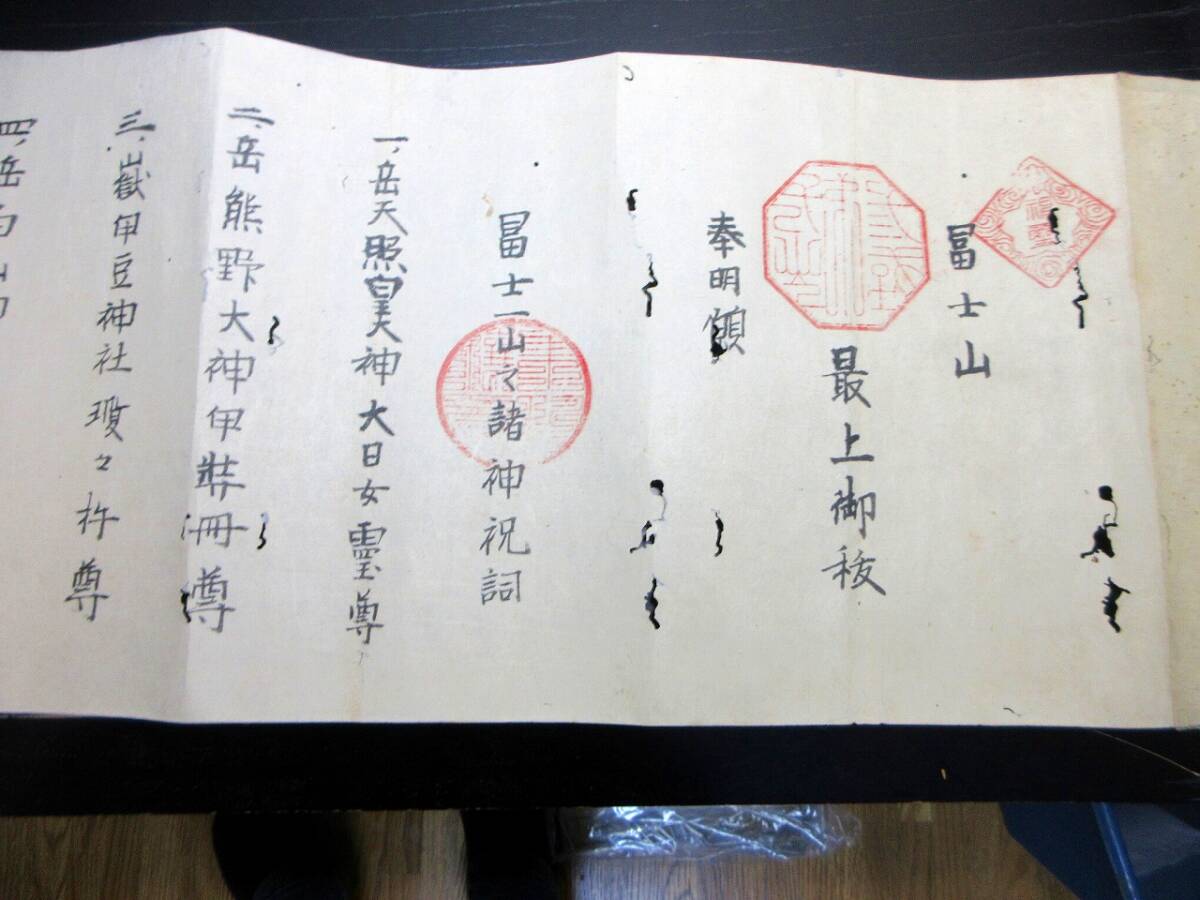 冨士山
最上御祓
奉明
冨士一山之諸神祝詞
一、岳天照皇大神大日女霊尊
二、岳熊野大神伊弉冊尊
三、山嶽伊豆神社瓊々杵尊
四、岳白山